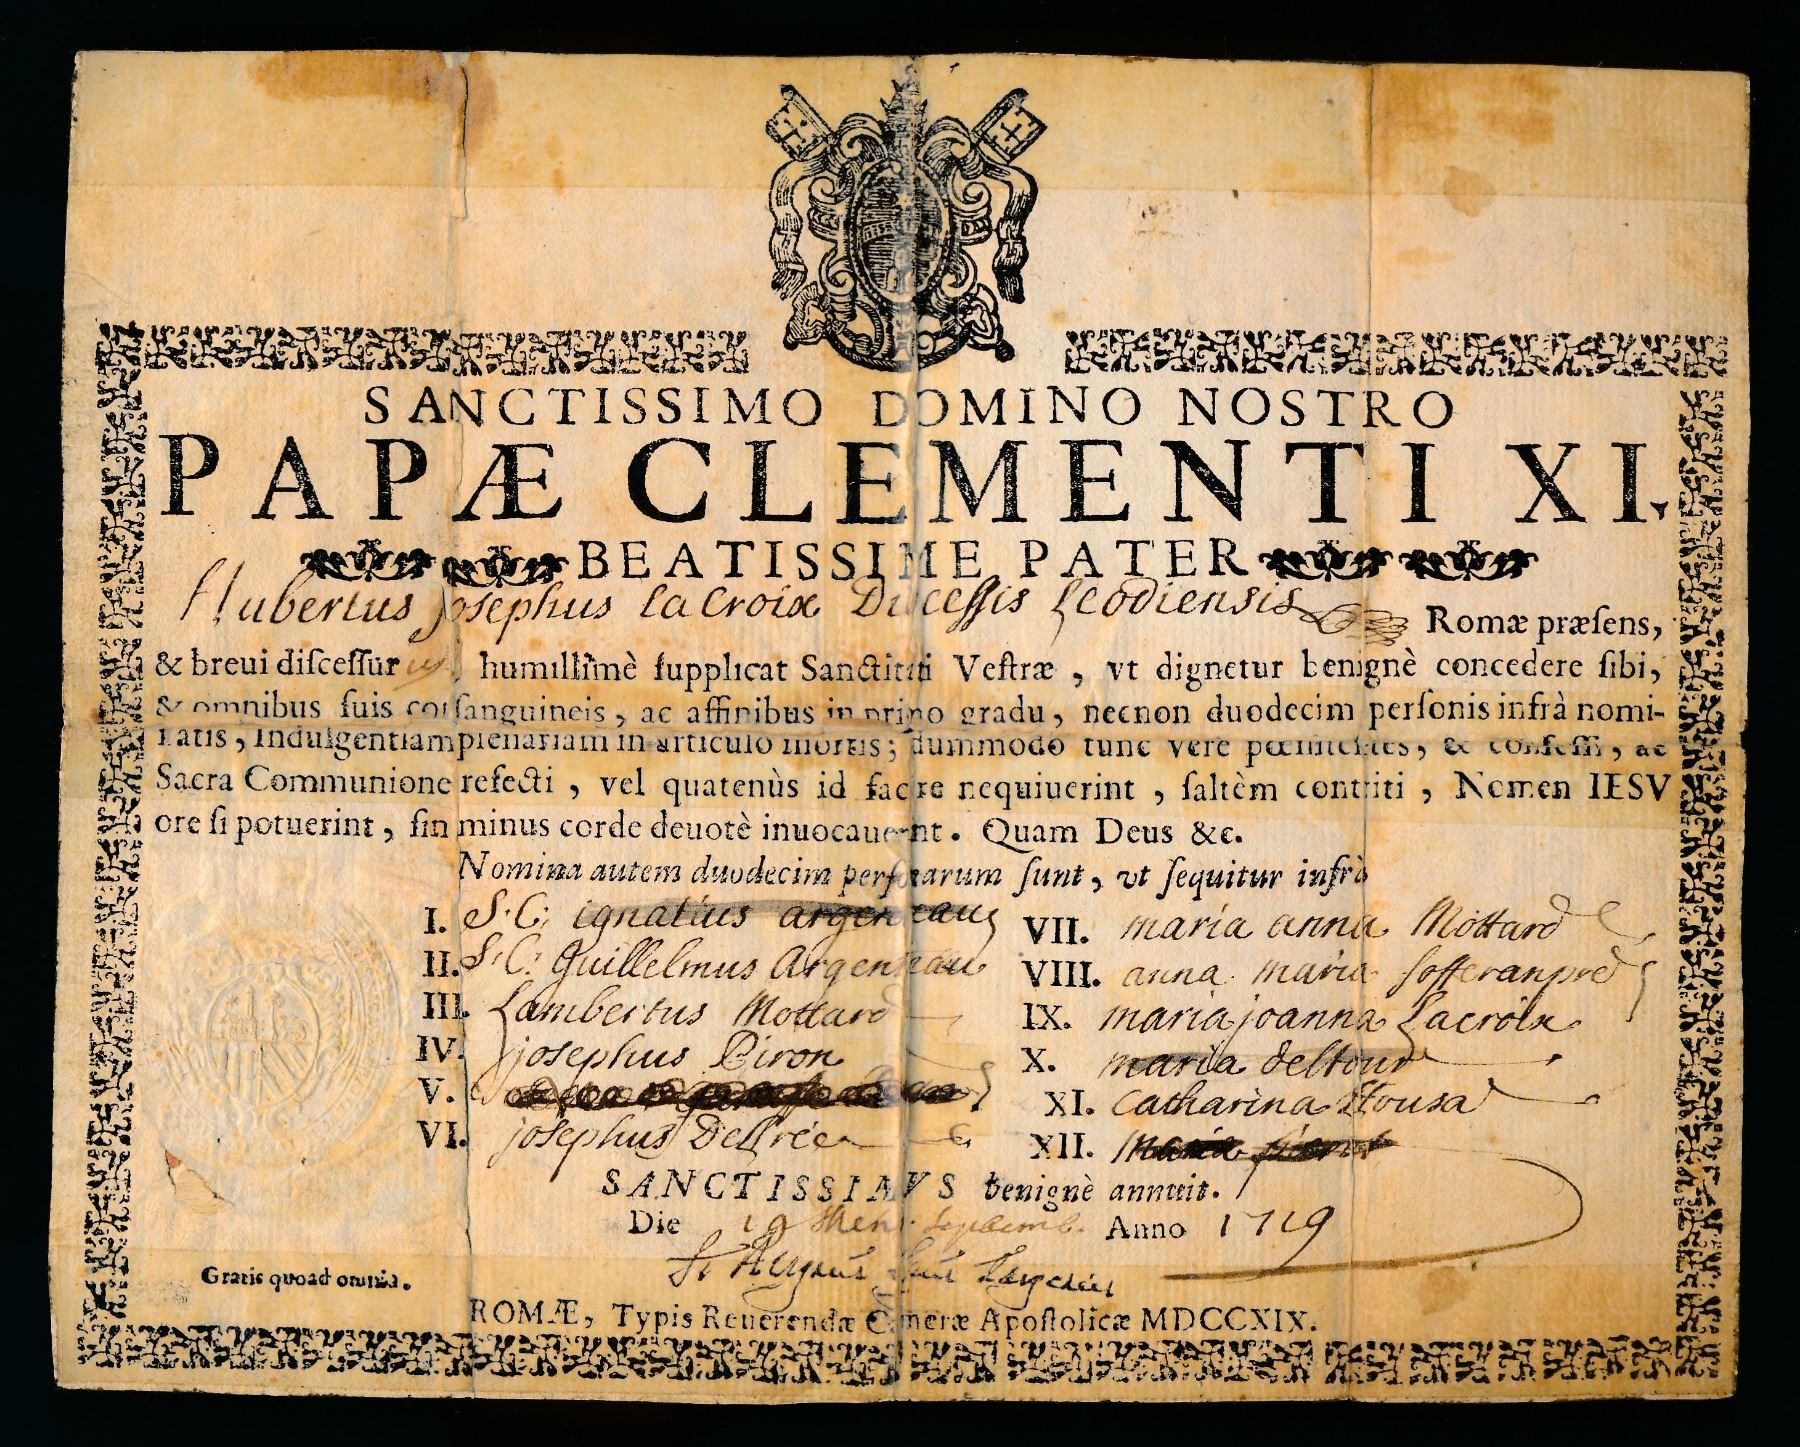 SANCTISSIMO DOMINO NOSTRO
PAPÆ CLEMENTI XI,
BEATISSIME PATER
Hubertus josephus la Croix Diecessis Leodiensis Romæ præsens,
& breui discessurus humillimè supplicat Sanctitati Vestræ, vt dignetur benignè concedere sibi,
& omnibus suis consanguineis, ac affinibus in primo gradu, necnon duodecim personis infrà nomi-
natis, Indulgentiam plenariam in articulo mortis; dummodo tunc vere pœnitentes, & confessi, ac
Sacra Communione refecti, vel quatenùs id facere nequiuerint, saltèm contriti, Nomen IESV
ore si potuerint, sin minus corde deuotè inuocauerint. Quam Deus &c.
Nomina autem duodecim personarum sunt, vt sequitur infrà
I. S. C. ignatius argenteau
II. S. C. Guillelmus Argenteau
III. Lambertus Mottard
IV. josephus Piron
V.
VI. josephus Delrée
VII. maria anna Mottard
VIII. anna maria
IX. maria joanna Lacroix
X. maria deltour
XI. Catharina Housa
XII. maria
SANCTISSIMVS benignè annuit.
Die 19 Mens. Septemb. Anno 1719
Gratis quoad omnia.
ROMÆ, Typis Reuerendæ Cameræ Apostolicæ MDCCXIX.